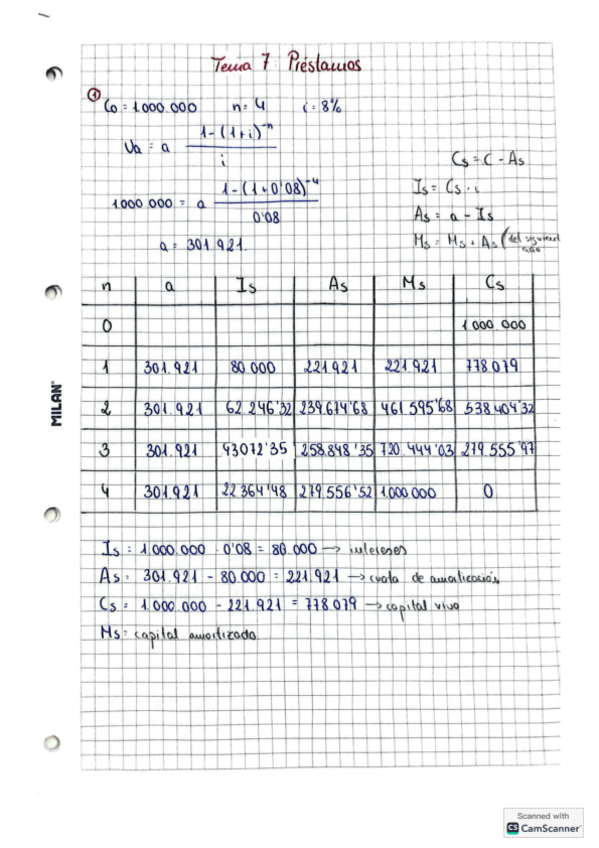 Tema 7: Préstamos
①
Co = 1.000.000 n = 4 i = 8%
Va = a 1-(1+i)^-n / i
Cs = C - As
1.000.000 = a 1-(1+0'08)^-4 / 0'08
Is = Cs · i
As = a - Is
a = 301.921.
Ms = Ms + As (del siguiente año
n a Is As Ms Cs
0 1.000.000
1 301.921 80.000 221.921 221.921 778.079
2 301.921 62.246'32 239.674'68 461.595'68 538.404'32
3 301.921 43072'35 258.848'35 720.444'03 279.555'97
4 301.921 22.364'48 279.556'52 1.000.000 0
Is = 1.000.000 · 0'08 = 80.000 → intereses
As = 301.921 - 80.000 = 221.921 → cuota de amortización
Cs = 1.000.000 - 221.921 = 778.079 → capital vivo
Ms = capital amortizado
MILAN
Scanned with
CS CamScanner